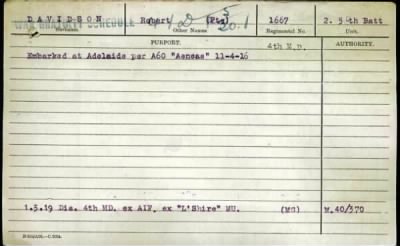 DAVIDSON Robert (Pte) 1667 2. 5 th Batt
WAR GRATUITY SCHEDULE 20.1
Surname. Other Names Regimental No. Unit.
PURPORT. 4th M.D. AUTHORITY.
Embarked at Adelaide per A60 "Aeneas" 11-4-16
1.5.19 Dis. 4th MD. ex AIF. ex "L'Shire" MU. (MC) M.40/370